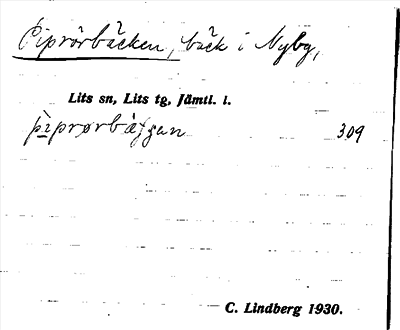 Piprörbäcken, bäck i Nybg,
Lits sn, Lits tg, Jämtl. l.
309
C. Lindberg 1930.